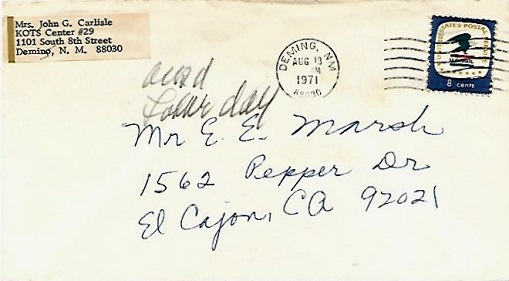 Mrs. John G. Carlisle
KOTS Center #29
1101 South 8th Street
Deming, N. M. 88030
DEMING, NM
AUG 13
M
1971
88030
UNITED STATES POSTAL SERVICE
U.S. MAIL
8 cents
day
Mr E. E. Marsh
1562 Pepper Dr
El Cajon, CA 92021